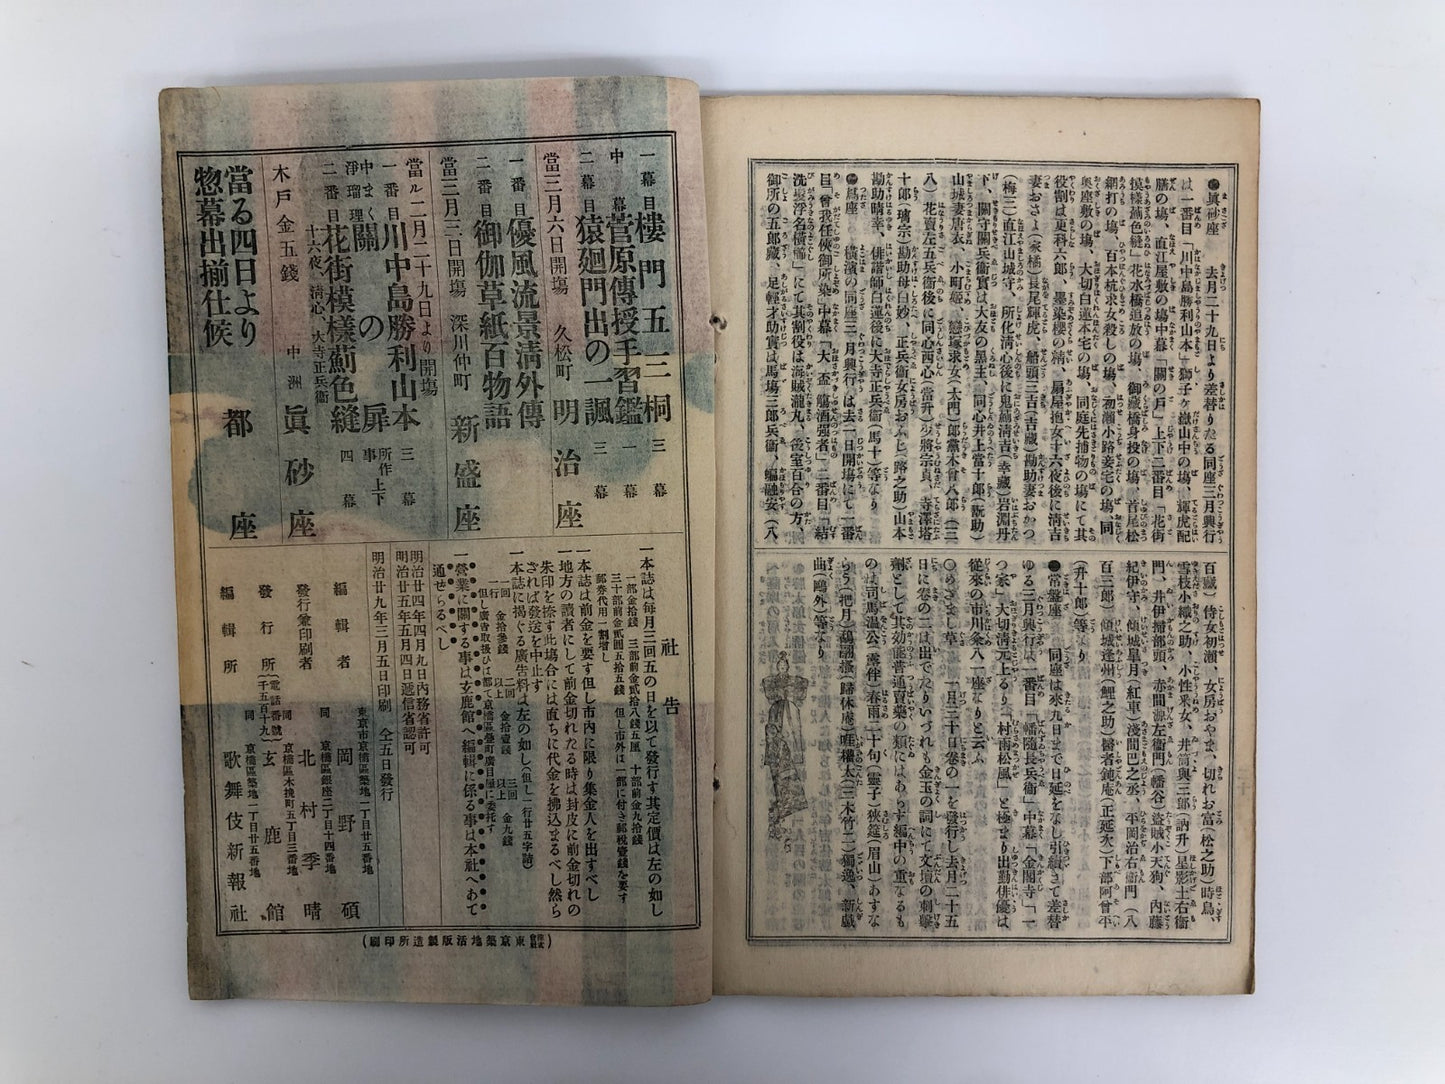 ●眞砂座 去月二十九日より差替りたる同座三月興行
は一番目「川中島勝利山本」獅子ヶ嶽山中の塲、輝虎配
膳の塲、直江屋敷の塲中幕「關の戸」上下二番目「花街
摸樣薊色縫」花水橋道放の塲、御藏橋身投の塲、首尾松
網打の塲、百本杭求女殺しの塲、初瀬小路妾宅の塲、同
奥座敷の塲、大切白蓮本宅の塲、同庭先捕物の塲にて其
役割は更科六郎、墨染櫻の精、扇屋抱女十六夜後に清吉
妻おさよ(家橘)長尾輝虎、船頭三吉(吉藏)勘助妻おかつ
(梅三)直江山城守、所化清心後に鬼薊清吉(幸藏)岩淵丹
下、關守關兵衞實は大友の黒主、同心井上當十郎(翫助)
山城妻唐衣、小町姫、戀塚求女(太門)二郎黨木曾八郎(三
八)花賣左五兵衞後に同心西心(當升)少將宗貞、寺澤塔
十郎(璃宗)勘助母白妙、正兵衞女房おふじ(路之助)山本
勘助晴幸、俳諧師白蓮後に大寺正兵衞(馬十)等なり
●蔦座 横濱の同座三月興行は去一日開塲にて一番
目「曾我任俠御所染」中幕「大盃觴酒强者」二番目「結
洗髪浮名橫櫛」にて其割役は海賊瀧丸、後室百合の方、
御所の五郎藏、足輕才助實は馬塲三郎兵衞、蝙融安(八
百藏)侍女初瀬、女房おやま、切れお富(松之助)時鳥、
雪枝小織之助、小性釆女、井筒與三郎(訥升)星影土右衞
門、井伊掃部頭、赤間源左衞門(幡谷)盜賊小天狗、内藤
紀伊守、傾城皐月(紅車)淺間巴之丞、平岡治右衞門(八
百三郎)傾城逢州(鯉之助)醫者鈍庵(正延次)下部阿曾平
(升十郎)等なり
●常盤座 同座は來九日まで日延をなし引續きて差替
ゆる三月興行は一番目「幡隨長兵衞」中幕「金閣寺」「一
つ家」大切清元上るり「村雨松風」と極まり出勤俳優は
從來の市川粂八一座なりと云ふ
○めさまし草 一月三十日卷の一を發行し去月二十五
日に卷の二は出でたりいづれも金玉の詞にて文壇の刺擊
劑として其効能普通賣藥の類にはあらず編中の重なるも
のは司馬温公(露伴)春雨二十句(靈子)狹筵(眉山)あすな
らう(把月)鷸翮搔(歸休庵)唖權太(三木竹二)獨逸、新戯
曲(鷗外)等なり
一幕目 樓門五三桐 三幕
中幕 菅原傳授手習鑑 一幕
二幕目 猿廻門出の一諷 三幕
當三月六日開塲 久松町 明治座
一番目 優風流景清外傳
二番目 御伽草紙百物語
當三月三日開塲 深川仲町 新盛座
當ル二月二十九日より開塲
一番目 川中島勝利山本 三幕
中まく 關の扉 所作事上下
淨瑠理
二番目 花街模樣薊色縫 四幕
十六夜 清心 大寺正兵衞
木戸金五錢 中洲 眞砂座
當る四日より
惣幕出揃仕候 都座
社告
一本誌は毎月三回五の日を以て發行す其定價は左の如し
一部金拾錢 三部前金貳拾八錢五厘 十部前金九拾錢
三十部前金貳圓五拾五錢 但し市外は一部に付き郵税壹錢を要す
郵券代用一割增し
一本誌は前金を要す但し市内に限り集金人を出すべし
一地方の讀者にして前金切れたる時は封皮に前金切れの
朱印を捺す此塲合には直ちに代金を拂込まるべし然ら
ざれば發送を中止す
一本誌に揭ぐる廣告料は左の如し(但し一行廿五字詰)
一回 金拾參錢 二回以上 金拾壹錢 三回以上 金九錢
一行
但し廣告取扱ひは都て京橋區疊町廣目屋に委托す
一營業に關する事は玄鹿館へ編輯に係る事は本社へあて
通せらるべし
明治廿四年四月九日内務省許可
明治廿五年五月四日遞信省認可
明治廿九年三月五日印刷 仝五日發行
東京市京橋區築地一丁目廿五番地
編輯者 岡野碩
同 京橋區銀座二丁目十四番地
發行兼印刷者 北村季晴
同 京橋區木挽町五丁目三番地
發行所 (電話番號千五百十九) 玄鹿館
同 京橋區築地一丁目廿五番地
編輯所 歌舞伎新報社
(株式會社東京築地活版製造所印刷)